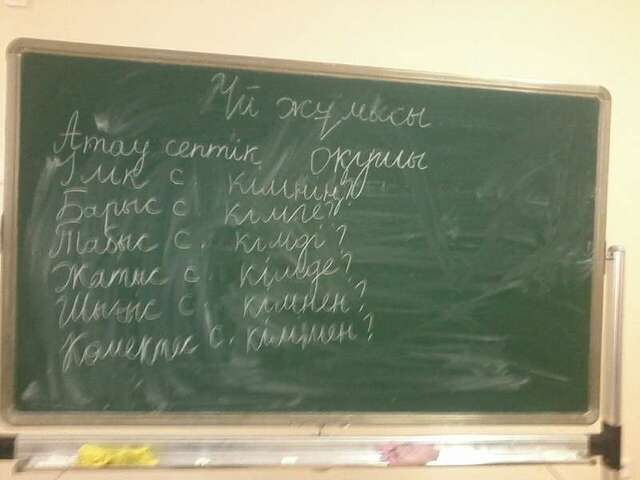 Үй жұмысы
Атау септік оқушы
Ілік с. кімнің?
Барыс с. кімге?
Табыс с. кімді?
Жатыс с. кімде?
Шығыс с. кімнен?
Көмектес с. кіммен?